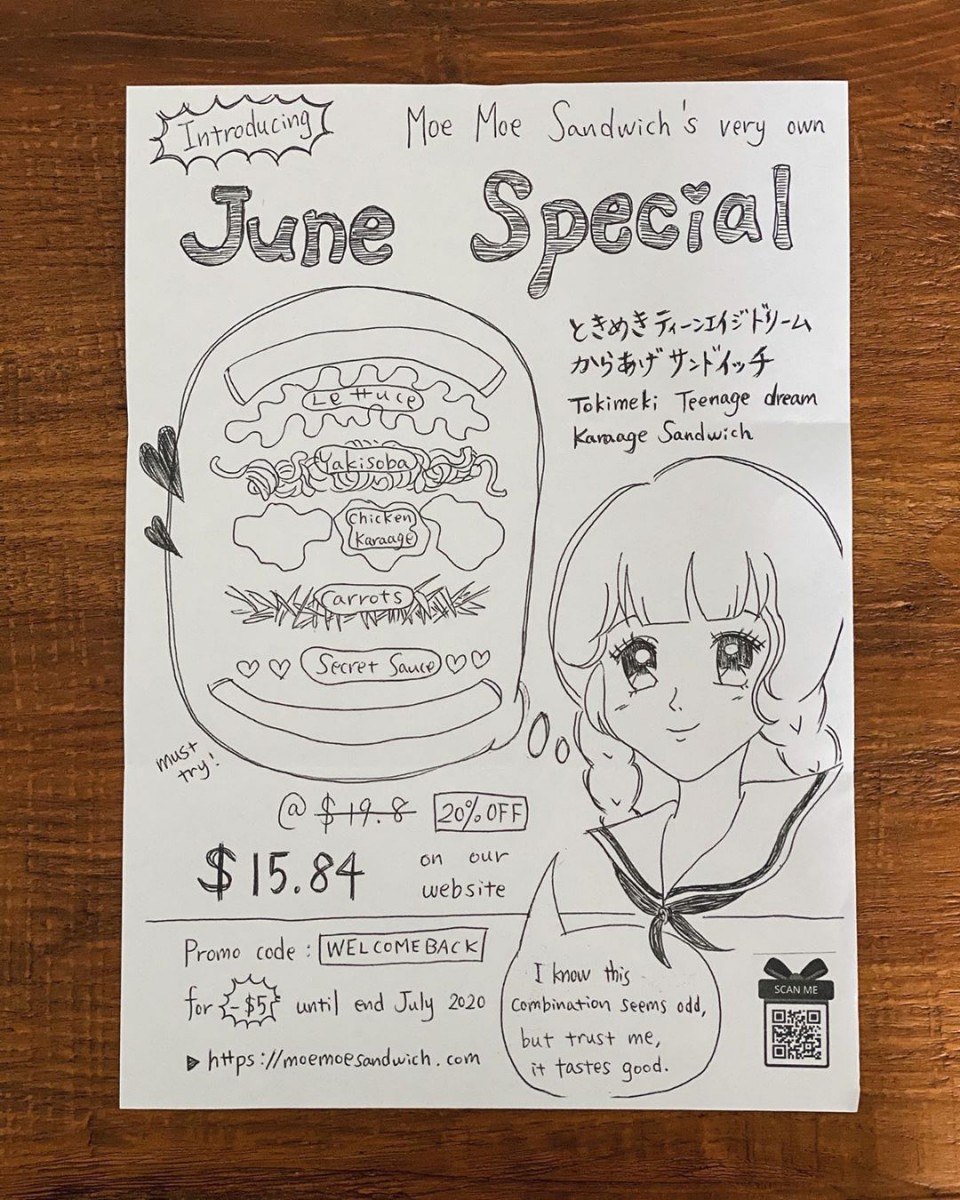 Introducing
Moe Moe Sandwich's very own
June Special
ときめきティーンエイジドリーム
からあげサンドイッチ
Tokimeki Teenage dream
Karaage Sandwich
Lettuce
Yakisoba
Chicken
Karaage
Carrots
Secret Sauce
must
try!
@ $19.8 20% OFF
$15.84
on our
website
Promo code : WELCOMEBACK
for -$5 until end July 2020
▶ https://moemoesandwich.com
I know this
combination seems odd,
but trust me,
it tastes good.
SCAN ME